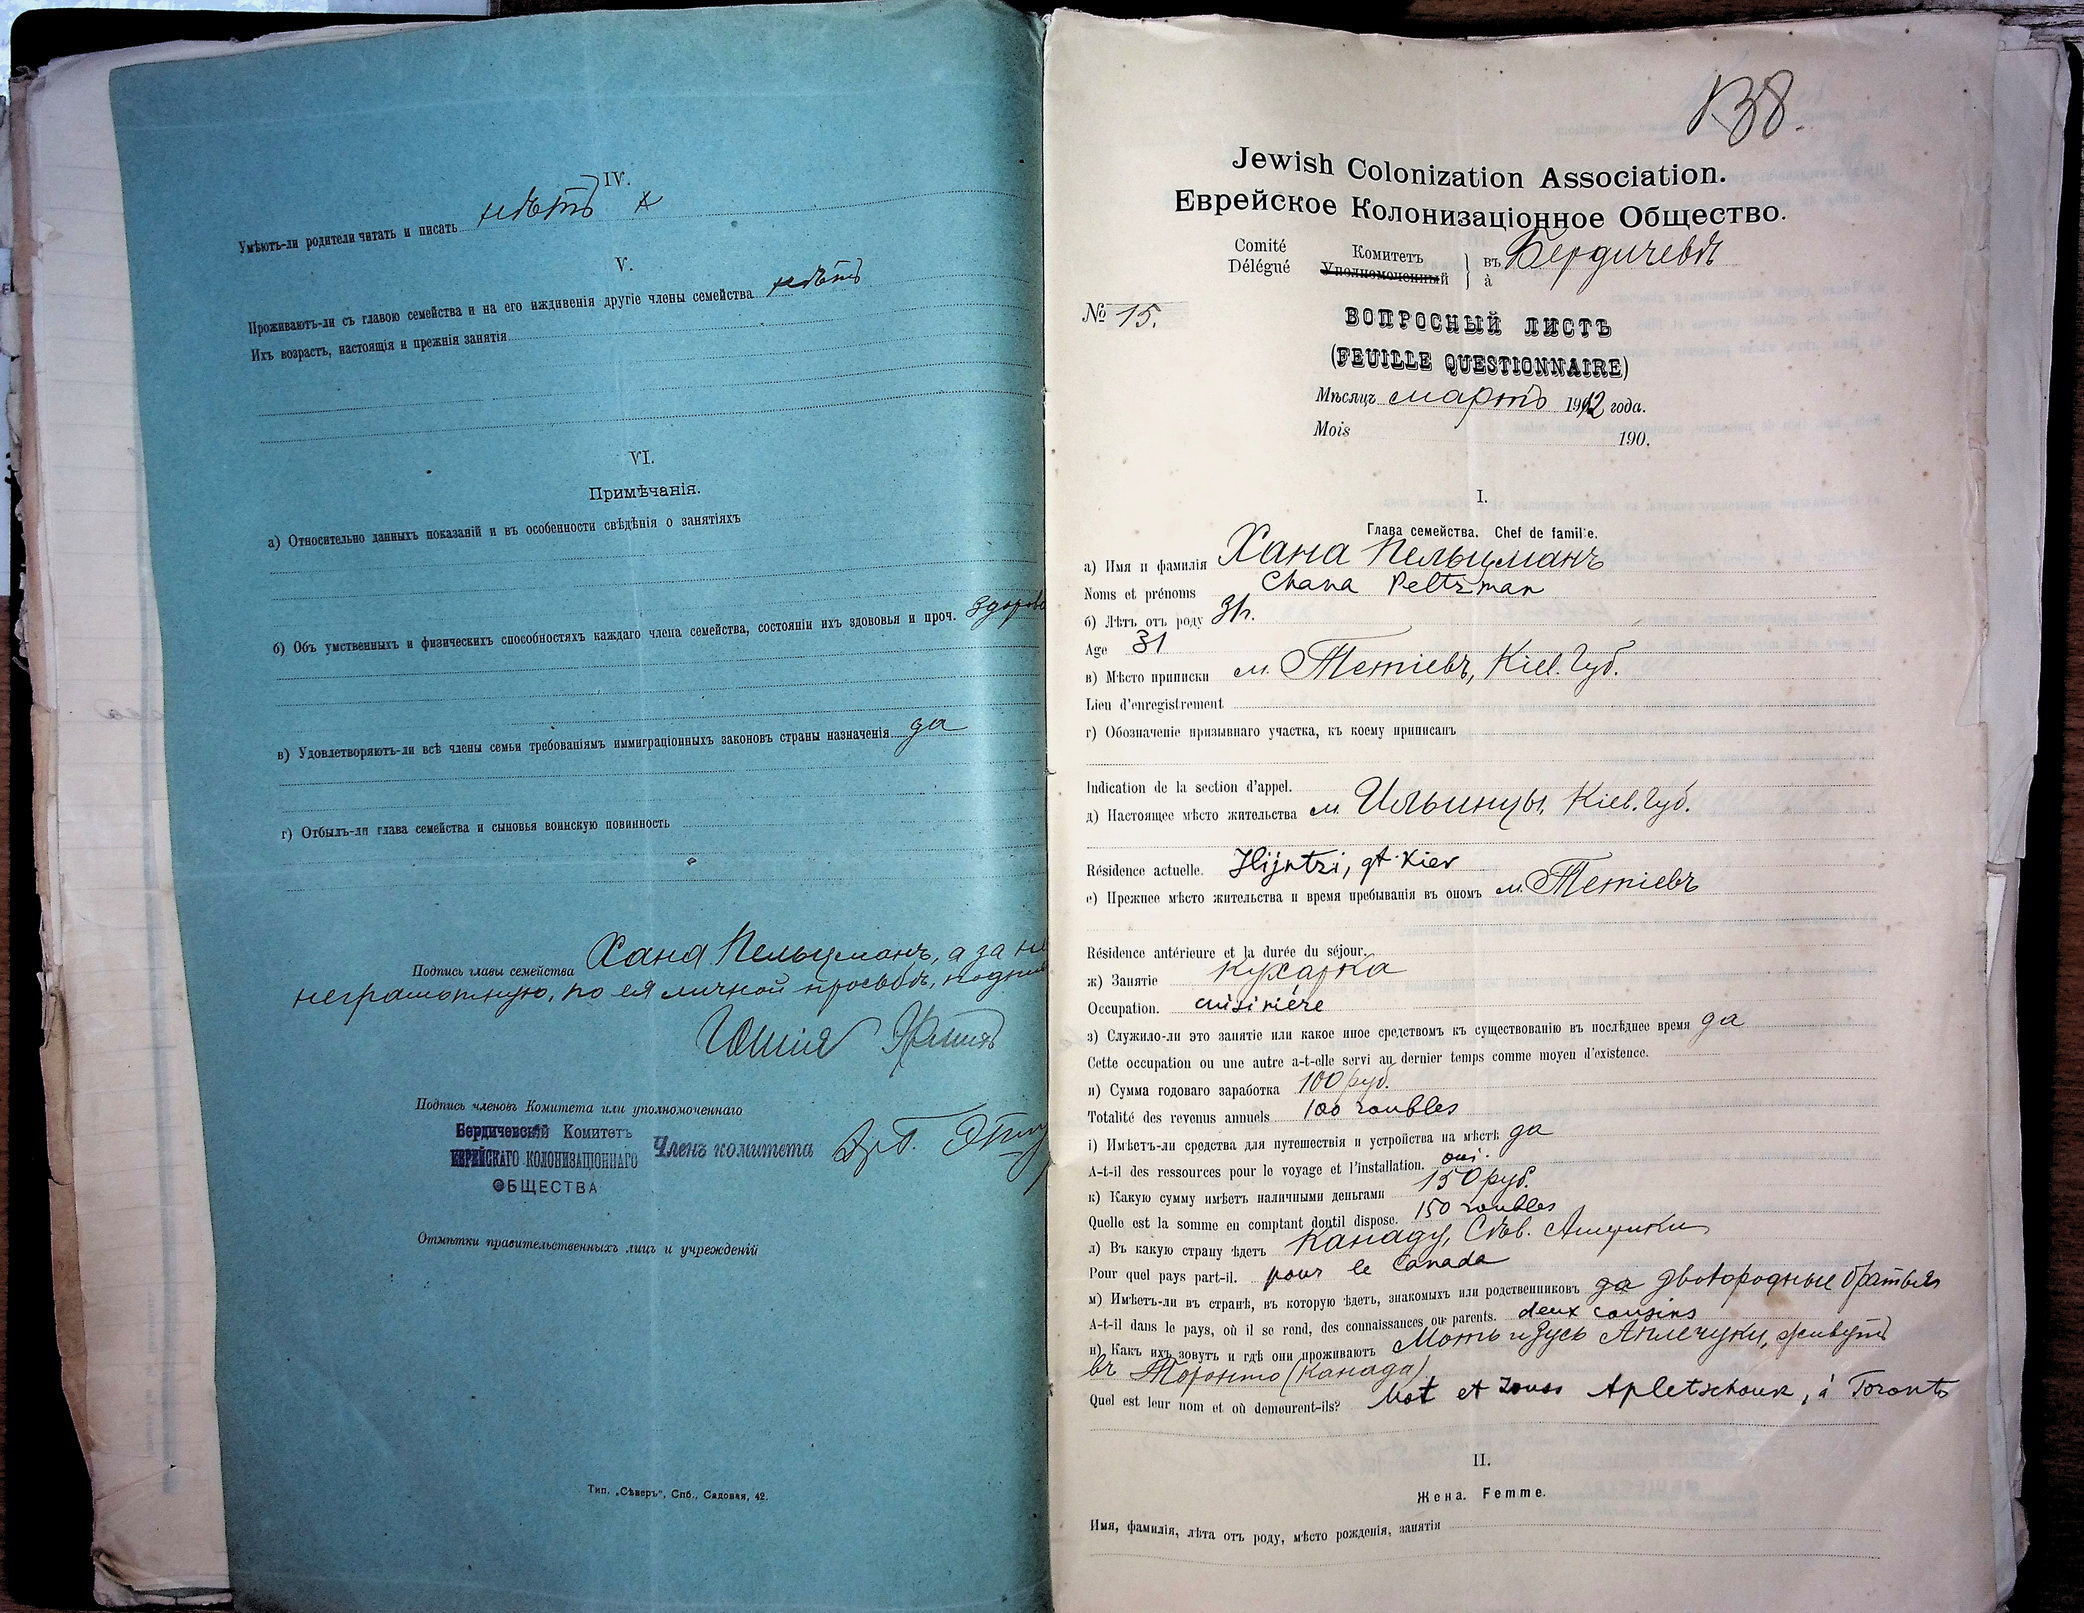 IV.
Умѣютъ-ли родители читать и писать нѣтъ
V.
Проживаютъ-ли съ главою семейства и на его иждивенія другіе члены семейства нѣтъ
Ихъ возрастъ, настоящія и прежнія занятія
VI.
Примѣчанія.
а) Относительно данныхъ показаній и въ особенности свѣдѣнія о занятіяхъ
б) Объ умственныхъ и физическихъ способностяхъ каждаго члена семейства, состояніи ихъ здововья и проч.
в) Удовлетворяютъ-ли всѣ члены семьи требованіямъ иммиграціонныхъ законовъ страны назначенія да
г) Отбылъ-ли глава семейства и сыновья воинскую повинность
Подпись главы семейства Хана Пельцманъ, а за не
неграмотную, по ея личной просьбѣ,
Подпись членовъ Комитета или уполномоченнаго
Бердичевскій Комитетъ
ЕВРЕЙСКАГО КОЛОНИЗАЦІОННАГО
ОБЩЕСТВА
Членъ комитета
Отмѣтки правительственныхъ лицъ и учрежденій
Тип. „Сѣверъ“, Спб., Садовая, 42.
138.
Jewish Colonization Association.
Еврейское Колонизаціонное Общество.
Comité Комитетъ въ Бердичевѣ
Délégué Уполномоченный à
№ 15.
ВОПРОСНЫЙ ЛИСТЪ
(FEUILLE QUESTIONNAIRE)
Мѣсяцъ мартъ 1912 года.
Mois 190.
I.
Глава семейства. Chef de famille.
а) Имя и фамилія Хана Пельцманъ
Noms et prénoms Chana Peltzman
б) Лѣтъ отъ роду 31 л.
Age 31
в) Мѣсто приписки м. Тетіевъ, Кіев. Губ.
Lieu d'enregistrement
г) Обозначеніе призывнаго участка, къ коему приписанъ
Indication de la section d'appel.
д) Настоящее мѣсто жительства м. Ильинцы, Кіев. Губ.
Résidence actuelle. Ilijntzi, gt. Kiev
е) Прежнее мѣсто жительства и время пребыванія въ ономъ м. Тетіевъ
Résidence antérieure et la durée du séjour.
ж) Занятіе Кухарка
Occupation. cuisinière
з) Служило-ли это занятіе или какое иное средствомъ къ существованію въ послѣднее время да
Cette occupation ou une autre a-t-elle servi au dernier temps comme moyen d'existence.
и) Сумма годоваго заработка 100 руб.
Totalité des revenus annuels 100 roubles
і) Имѣетъ-ли средства для путешествія и устройства на мѣстѣ да
A-t-il des ressources pour le voyage et l'installation. oui.
к) Какую сумму имѣетъ наличными деньгами 150 руб.
Quelle est la somme en comptant dontil dispose. 150 roubles
л) Въ какую страну ѣдетъ Канаду, Сѣв. Америки
Pour quel pays part-il. pour le Canada
м) Имѣетъ-ли въ странѣ, въ которую ѣдетъ, знакомыхъ или родственниковъ да двоюродные братья
A-t-il dans le pays, où il se rend, des connaissances ou parents. deux cousins
н) Какъ ихъ зовутъ и гдѣ они проживаютъ Моть и Зусь Аплечуки, живутъ
въ Торонто (Канада)
Quel est leur nom et où demeurent-ils? Mot et Zouss Apletschouk, à Toronto
II.
Жена. Femme.
Имя, фамилія, лѣта отъ роду, мѣсто рожденія, занятія